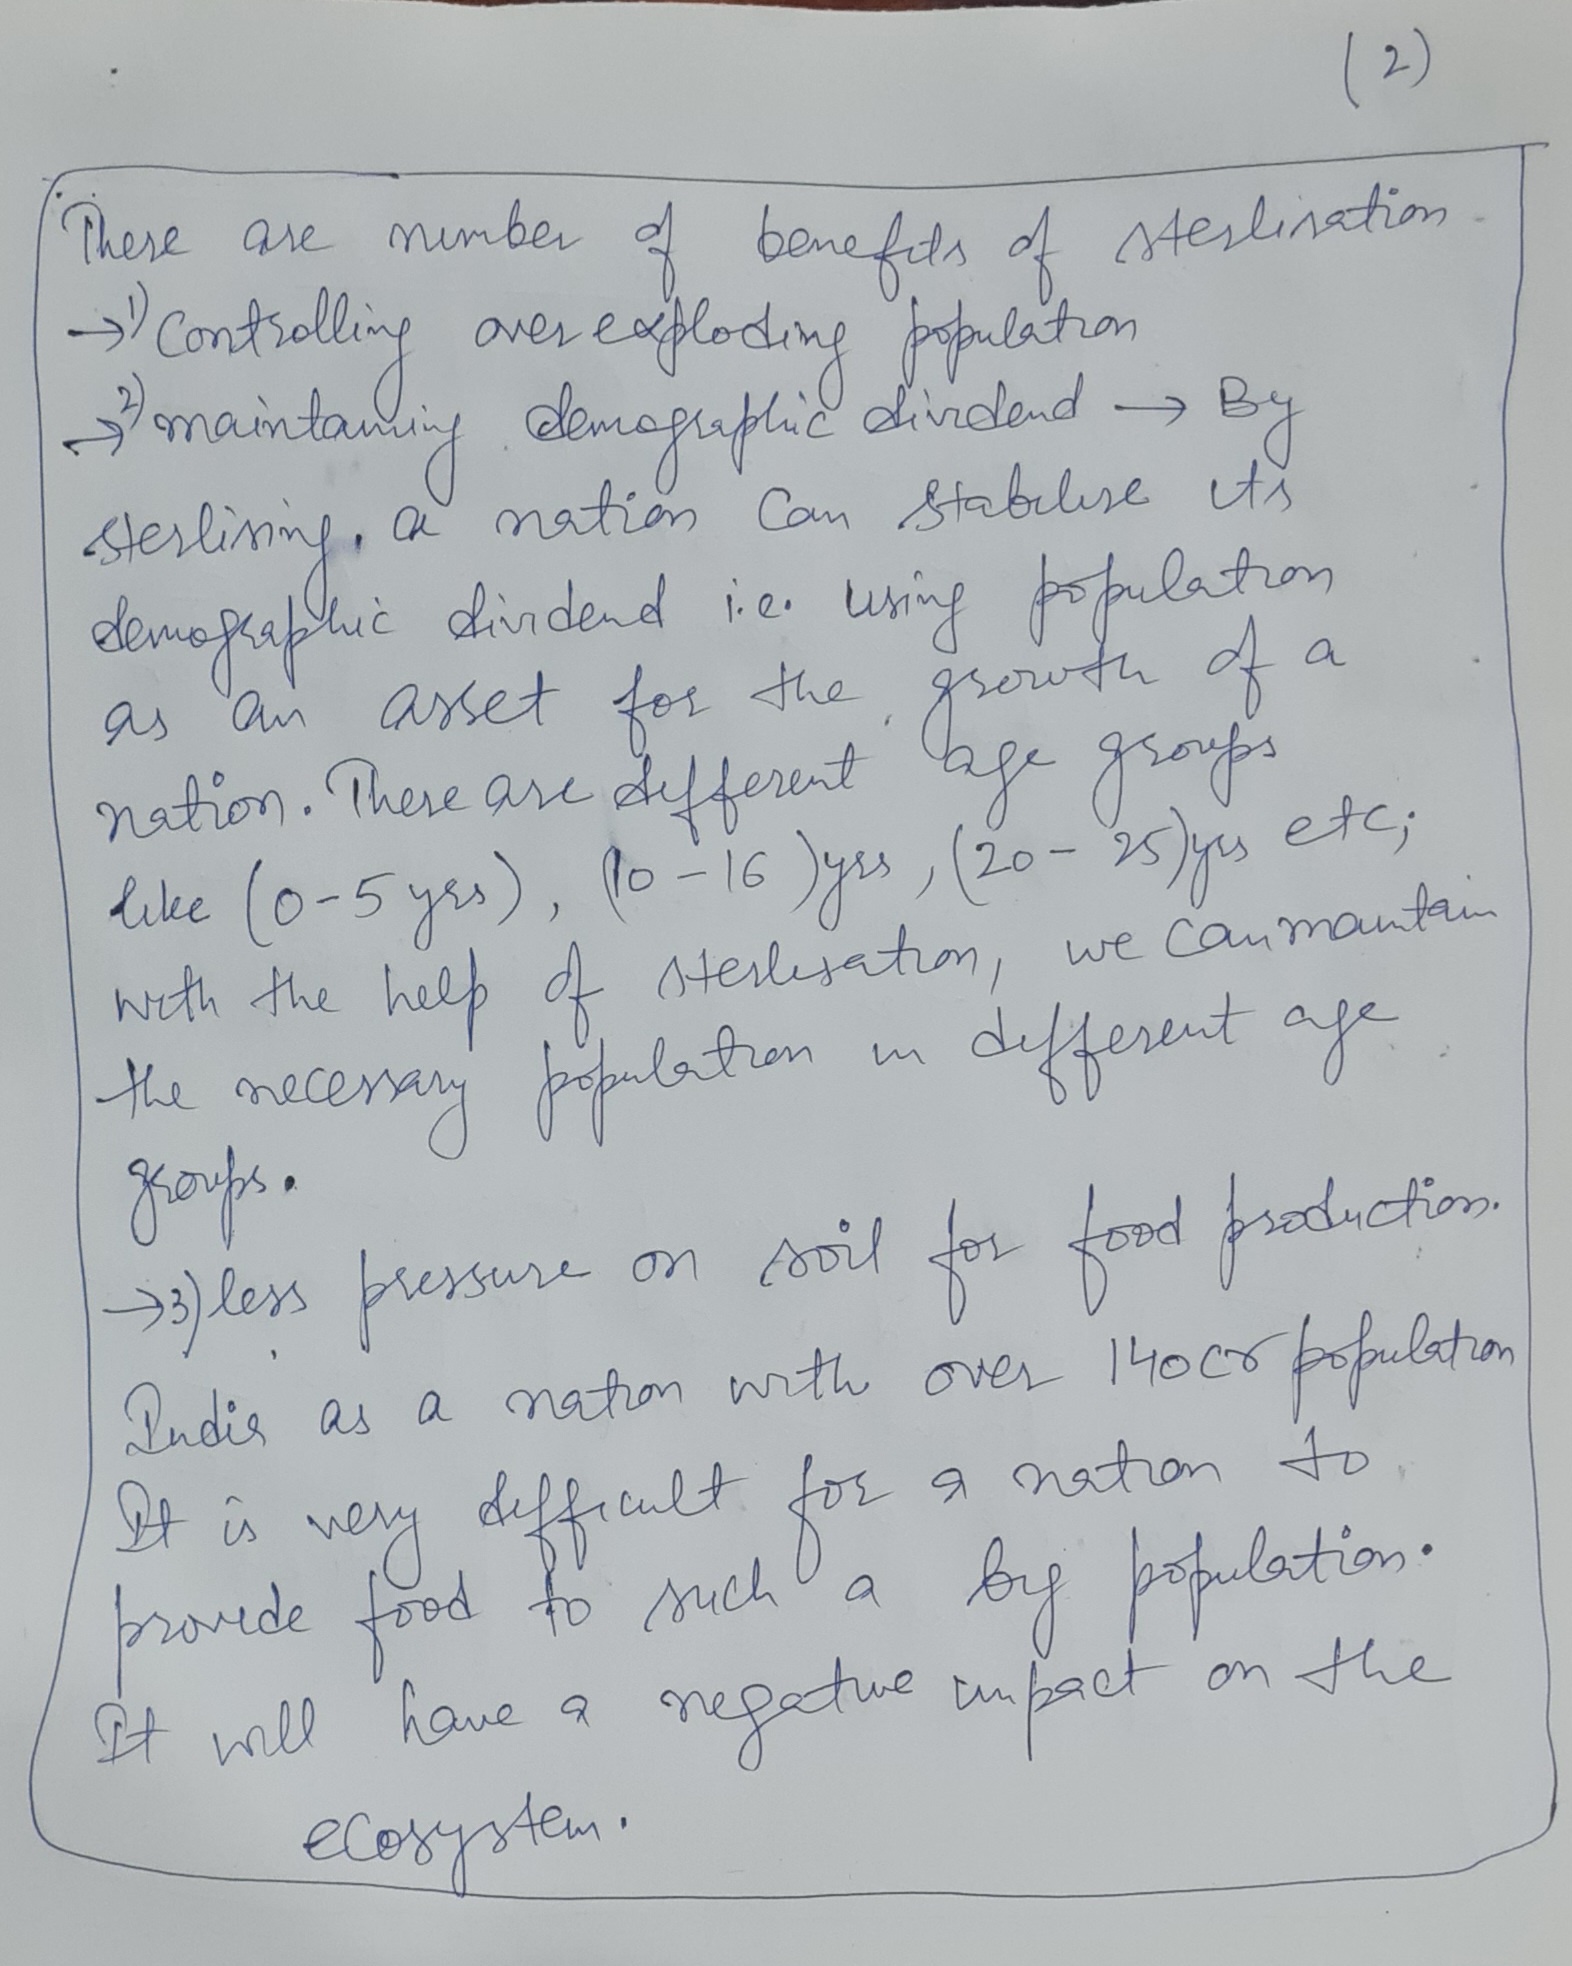 (2)
There are number of benefits of sterlisation
→1) Controlling over exploding population
→2) maintaining demographic dividend → By
sterlising, a nation can stabilise its
demographic dividend i.e. using population
as an asset for the growth of a
nation. There are different age groups
like (0-5 yrs), (10-16) yrs, (20-25) yrs etc;
with the help of sterlisation, we can maintain
the necessary population in different age
groups.
→3) less pressure on soil for food production.
India as a nation with over 140cr population
It is very difficult for a nation to
provide food to such a big population.
It will have a negative impact on the
ecosystem.